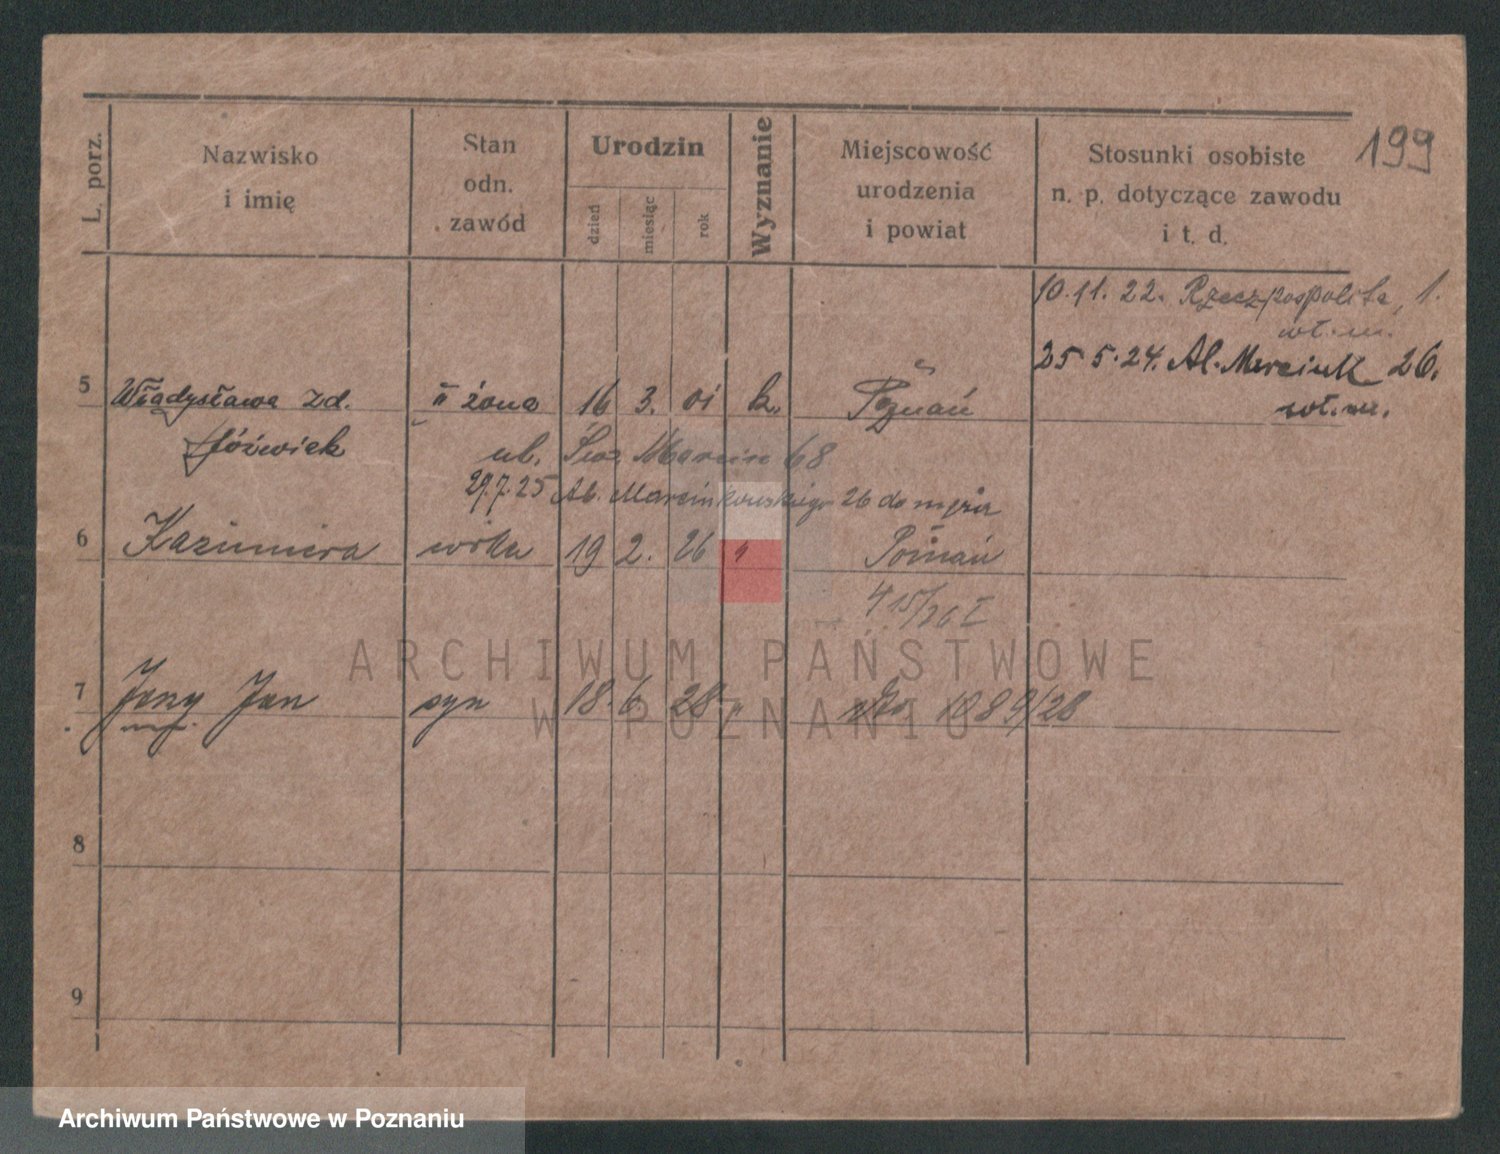 199
L. porz.
Nazwisko i imię
Stan odn. zawód
Urodzin
dzień miesiąc rok
Wyznanie
Miejscowość urodzenia i powiat
Stosunki osobiste n. p. dotyczące zawodu i t. d.
10.11.22. Rzeczpospolita, 1.
wł.m.
25.5.24. Al. Marcink 26.
wł.m.
5 Władysława zd. II żona 16 3. 01 k. Poznań
Jóźwiak ub. Św. Marcin 68
29.7.25 Al. Marcinkowskiego 26 do męża
6 Kazimiera córka 19 2. 26 " Poznań
415/26 I
7 Jerzy Jan syn 18. 6. 28 " 1089/28
8
9
ARCHIWUM PAŃSTWOWE
W POZNANIU
Archiwum Państwowe w Poznaniu